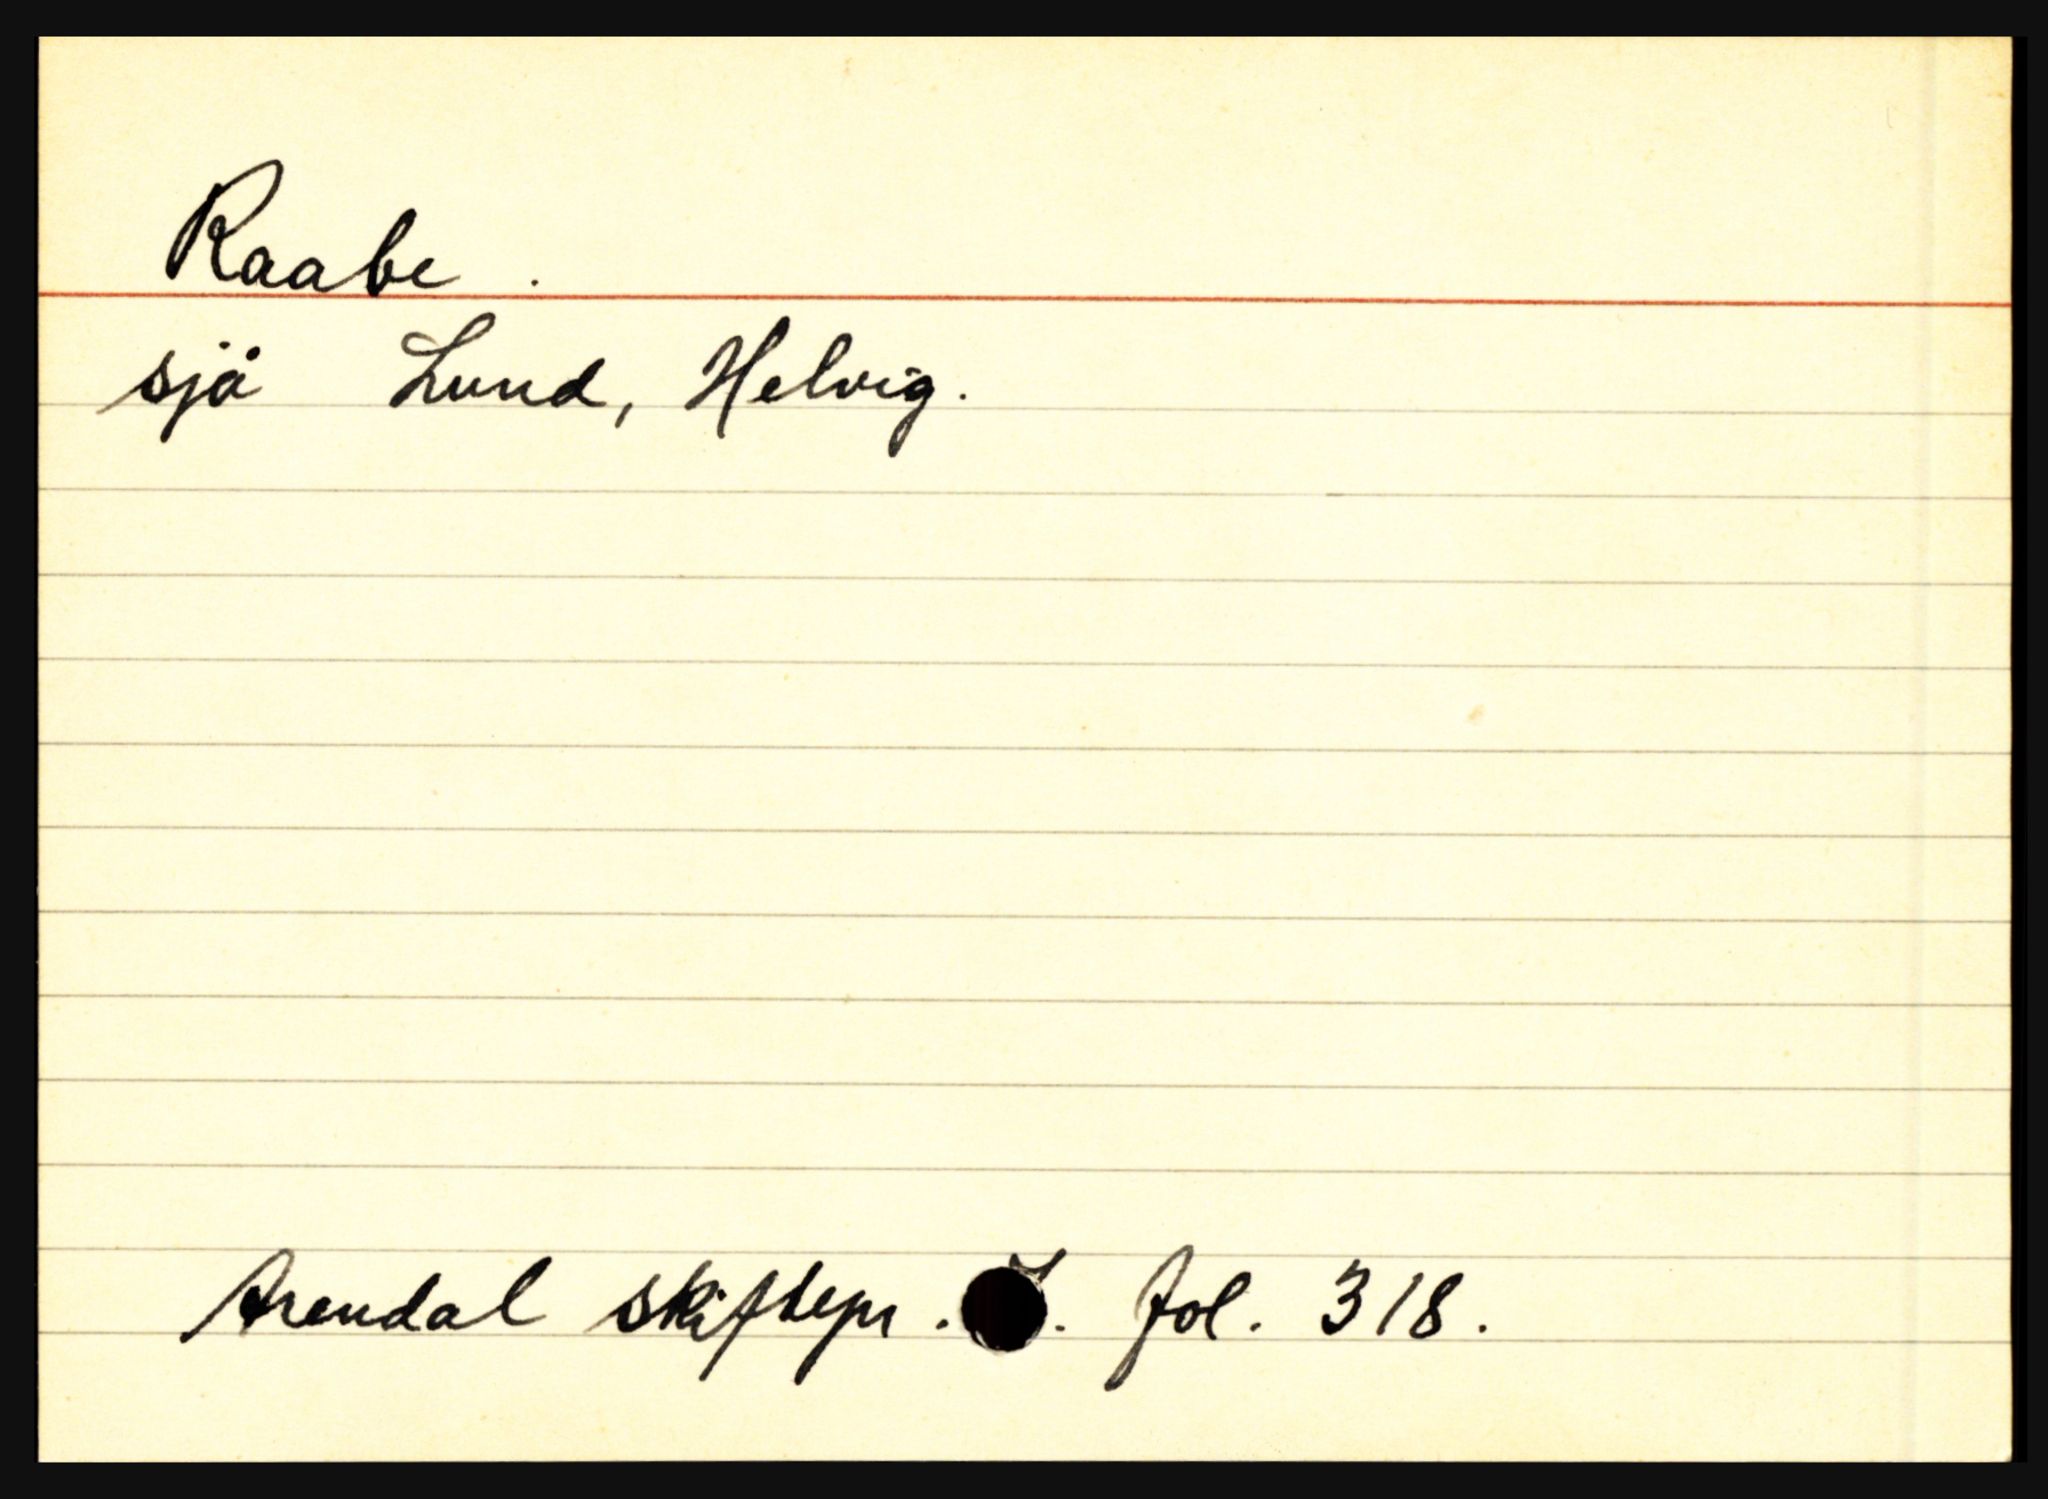 Raabe.
sjå Lund, Helvig.
Arendal skiftepr. fol. 318.